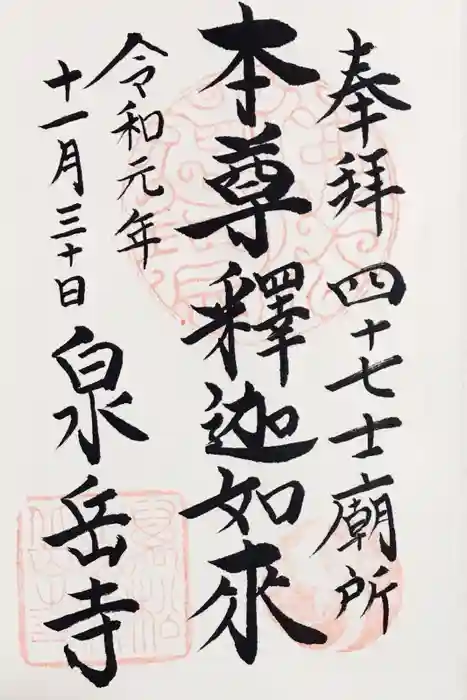 奉拝 四十七士廟所
本尊釋迦如來
令和元年
十一月三十日
泉岳寺